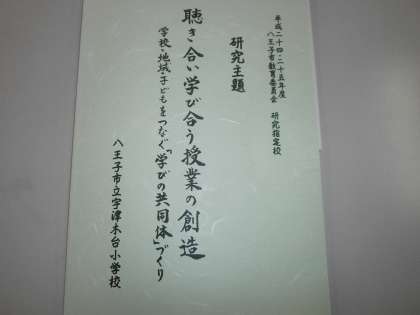 平成二十四・二十五年度
八王子市教育委員会 研究指定校
研究主題
聴き合い学び合う授業の創造
学校・地域・子どもをつなぐ「学びの共同体」づくり
八王子市立宇津木台小学校